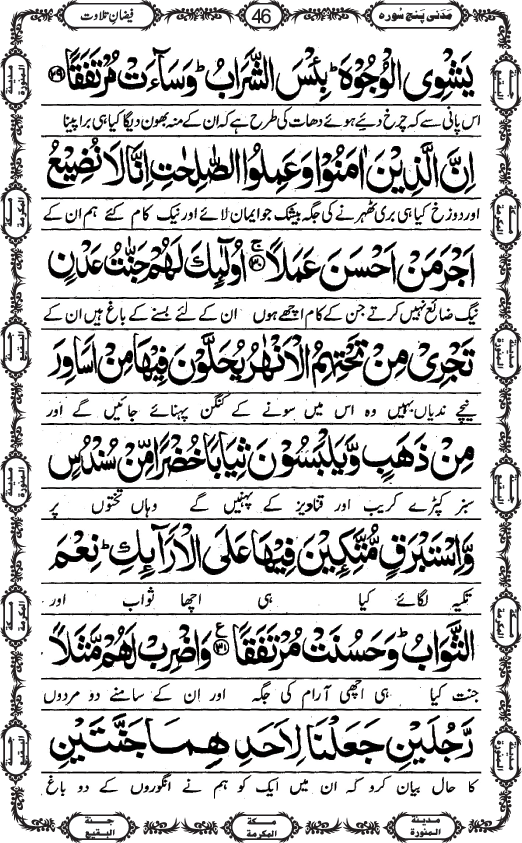 مَدَنی پنج سُورہ
46
فیضانِ تلاوت
یَشْوِی الْوُجُوْهَؕ بِئْسَ الشَّرَابُؕ وَ سَآءَتْ مُرْتَفَقًا ﴿۲۹﴾
اس پانی سے کہ چرخ دیے ہوئے دھات کی طرح ہے کہ ان کے منہ بھون دیگا کیا ہی برا پینا
اِنَّ الَّذِیْنَ اٰمَنُوْا وَ عَمِلُوا الصّٰلِحٰتِ اِنَّا لَا نُضِیْعُ
اور دوزخ کیا ہی بری ٹھہرنے کی جگہ بیشک جو ایمان لائے اور نیک کام کئے ہم ان کے
اَجْرَ مَنْ اَحْسَنَ عَمَلًا ﴿ۚ۳۰﴾ اُولٰٓىِٕكَ لَهُمْ جَنّٰتُ عَدْنٍ
نیگ ضائع نہیں کرتے جن کے کام اچھے ہوں ان کے لئے بسنے کے باغ ہیں ان کے
تَجْرِیْ مِنْ تَحْتِهِمُ الْاَنْهٰرُ یُحَلَّوْنَ فِیْهَا مِنْ اَسَاوِرَ
نیچے ندیاں بہیں وہ اس میں سونے کے کنگن پہنائے جائیں گے اور
مِنْ ذَهَبٍ وَّ یَلْبَسُوْنَ ثِیَابًا خُضْرًا مِّنْ سُنْدُسٍ
سبز کپڑے کریب اور قنادیز کے پہنیں گے وہاں تختوں پر
وَّ اِسْتَبْرَقٍ مُّتَّكِـِٕیْنَ فِیْهَا عَلَى الْاَرَآىِٕكِؕ نِعْمَ
تکیہ لگائے کیا ہی اچھا ثواب اور
الثَّوَابُؕ وَ حَسُنَتْ مُرْتَفَقًا ﴿۳۱﴾ع وَ اضْرِبْ لَهُمْ مَّثَلًا
جنت کیا ہی اچھی آرام کی جگہ اور ان کے سامنے دو مردوں
رَّجُلَیْنِ جَعَلْنَا لِاَحَدِهِمَا جَنَّتَیْنِ
کا حال بیان کرو کہ ان میں ایک کو ہم نے انگوروں کے دو باغ
مدینۃ المنورۃ
مکۃ المکرمۃ
جنۃ البقیع
مدینۃ المنورۃ
مکۃ المکرمۃ
جنۃ البقیع
جنۃ البقیع
مکۃ المکرمۃ
مدینۃ المنورۃ
جنۃ البقیع
مکۃ المکرمۃ
مدینۃ المنورۃ
مدینۃ المنورۃ
مکۃ المکرمۃ
جنۃ البقیع